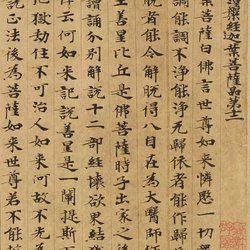 槃經迦葉菩薩品第十二
葉菩薩白佛言世尊如來憐愍一切
調能調不淨能淨无歸依者能作歸
脫者能令解脫得八自在為大醫師
王善星比丘是佛菩薩時子出家之後
讀誦分別解說十二部經壞欲界結
禪云何如來記說善星是一闡提廝
地獄劫住不可治人如來何故不先
說正法後為菩薩如來世尊若不能